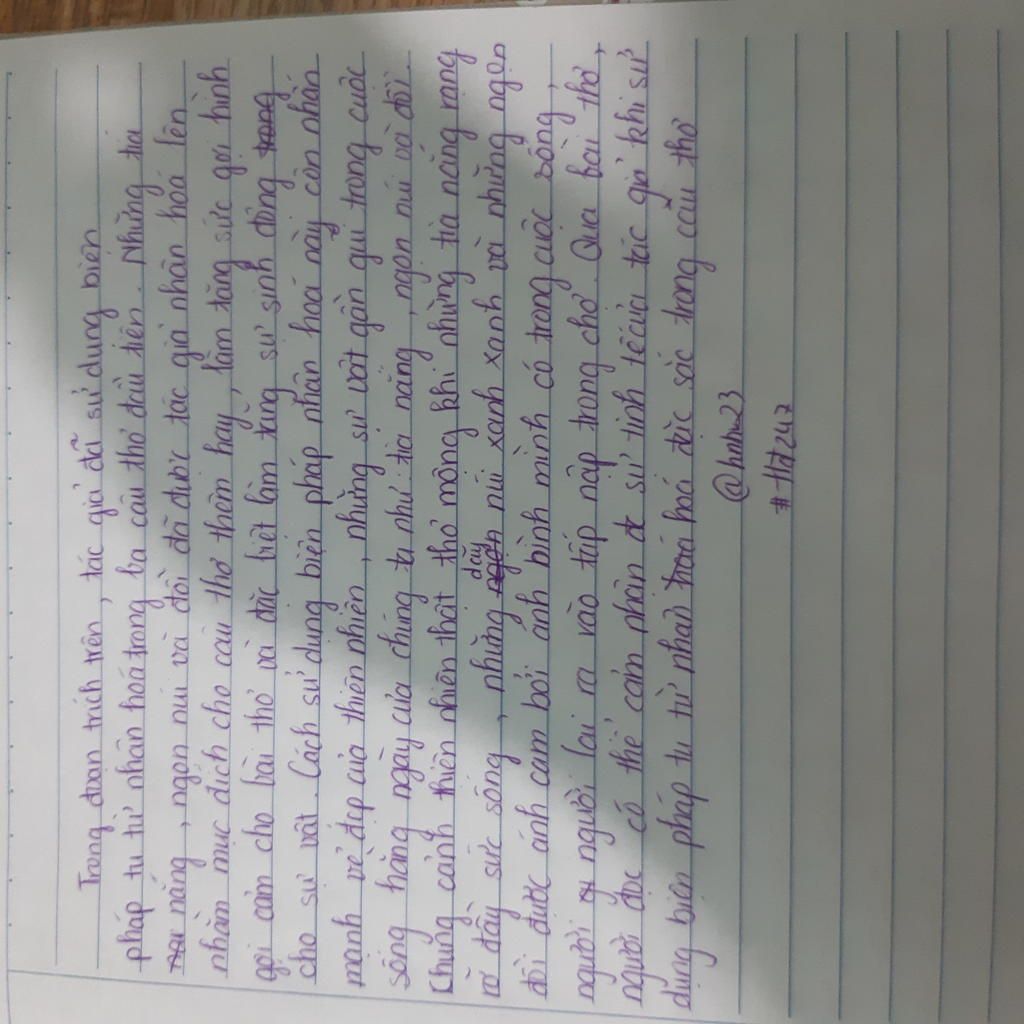 Trong đoạn trích trên, tác giả đã sử dụng biện
pháp tu từ nhân hoá trong ba câu thơ đầu tiên. Những tia
nắng, ngọn núi và đồi đã được tác giả nhân hoá lên
nhằm mục đích cho câu thơ thêm hay, làm tăng sức gợi hình
gợi cảm cho bài thơ và đặc biệt làm tăng sự sinh động
cho sự vật. Cách sử dụng biện pháp nhân hoá này còn nhấn
mạnh vẻ đẹp của thiên nhiên, những sự vật gần gũi trong cuộc
sống hằng ngày của chúng ta như: tia nắng, ngọn núi và đồi.
Khung cảnh thiên nhiên thật thơ mộng khi những tia nắng rạng
rỡ đầy sức sống, những dãy núi xanh xanh và những ngọn
đồi được ánh cam bởi ánh bình minh có trong cuộc sống,
người người lại ra vào tấp nập trong chợ. Qua bài thơ,
người đọc có thể cảm phận đc sự tinh tế của tác giả khi sử
dụng biện pháp tu từ nhân hoá đặc sắc trong câu thơ
@hnhu23
#Hd247